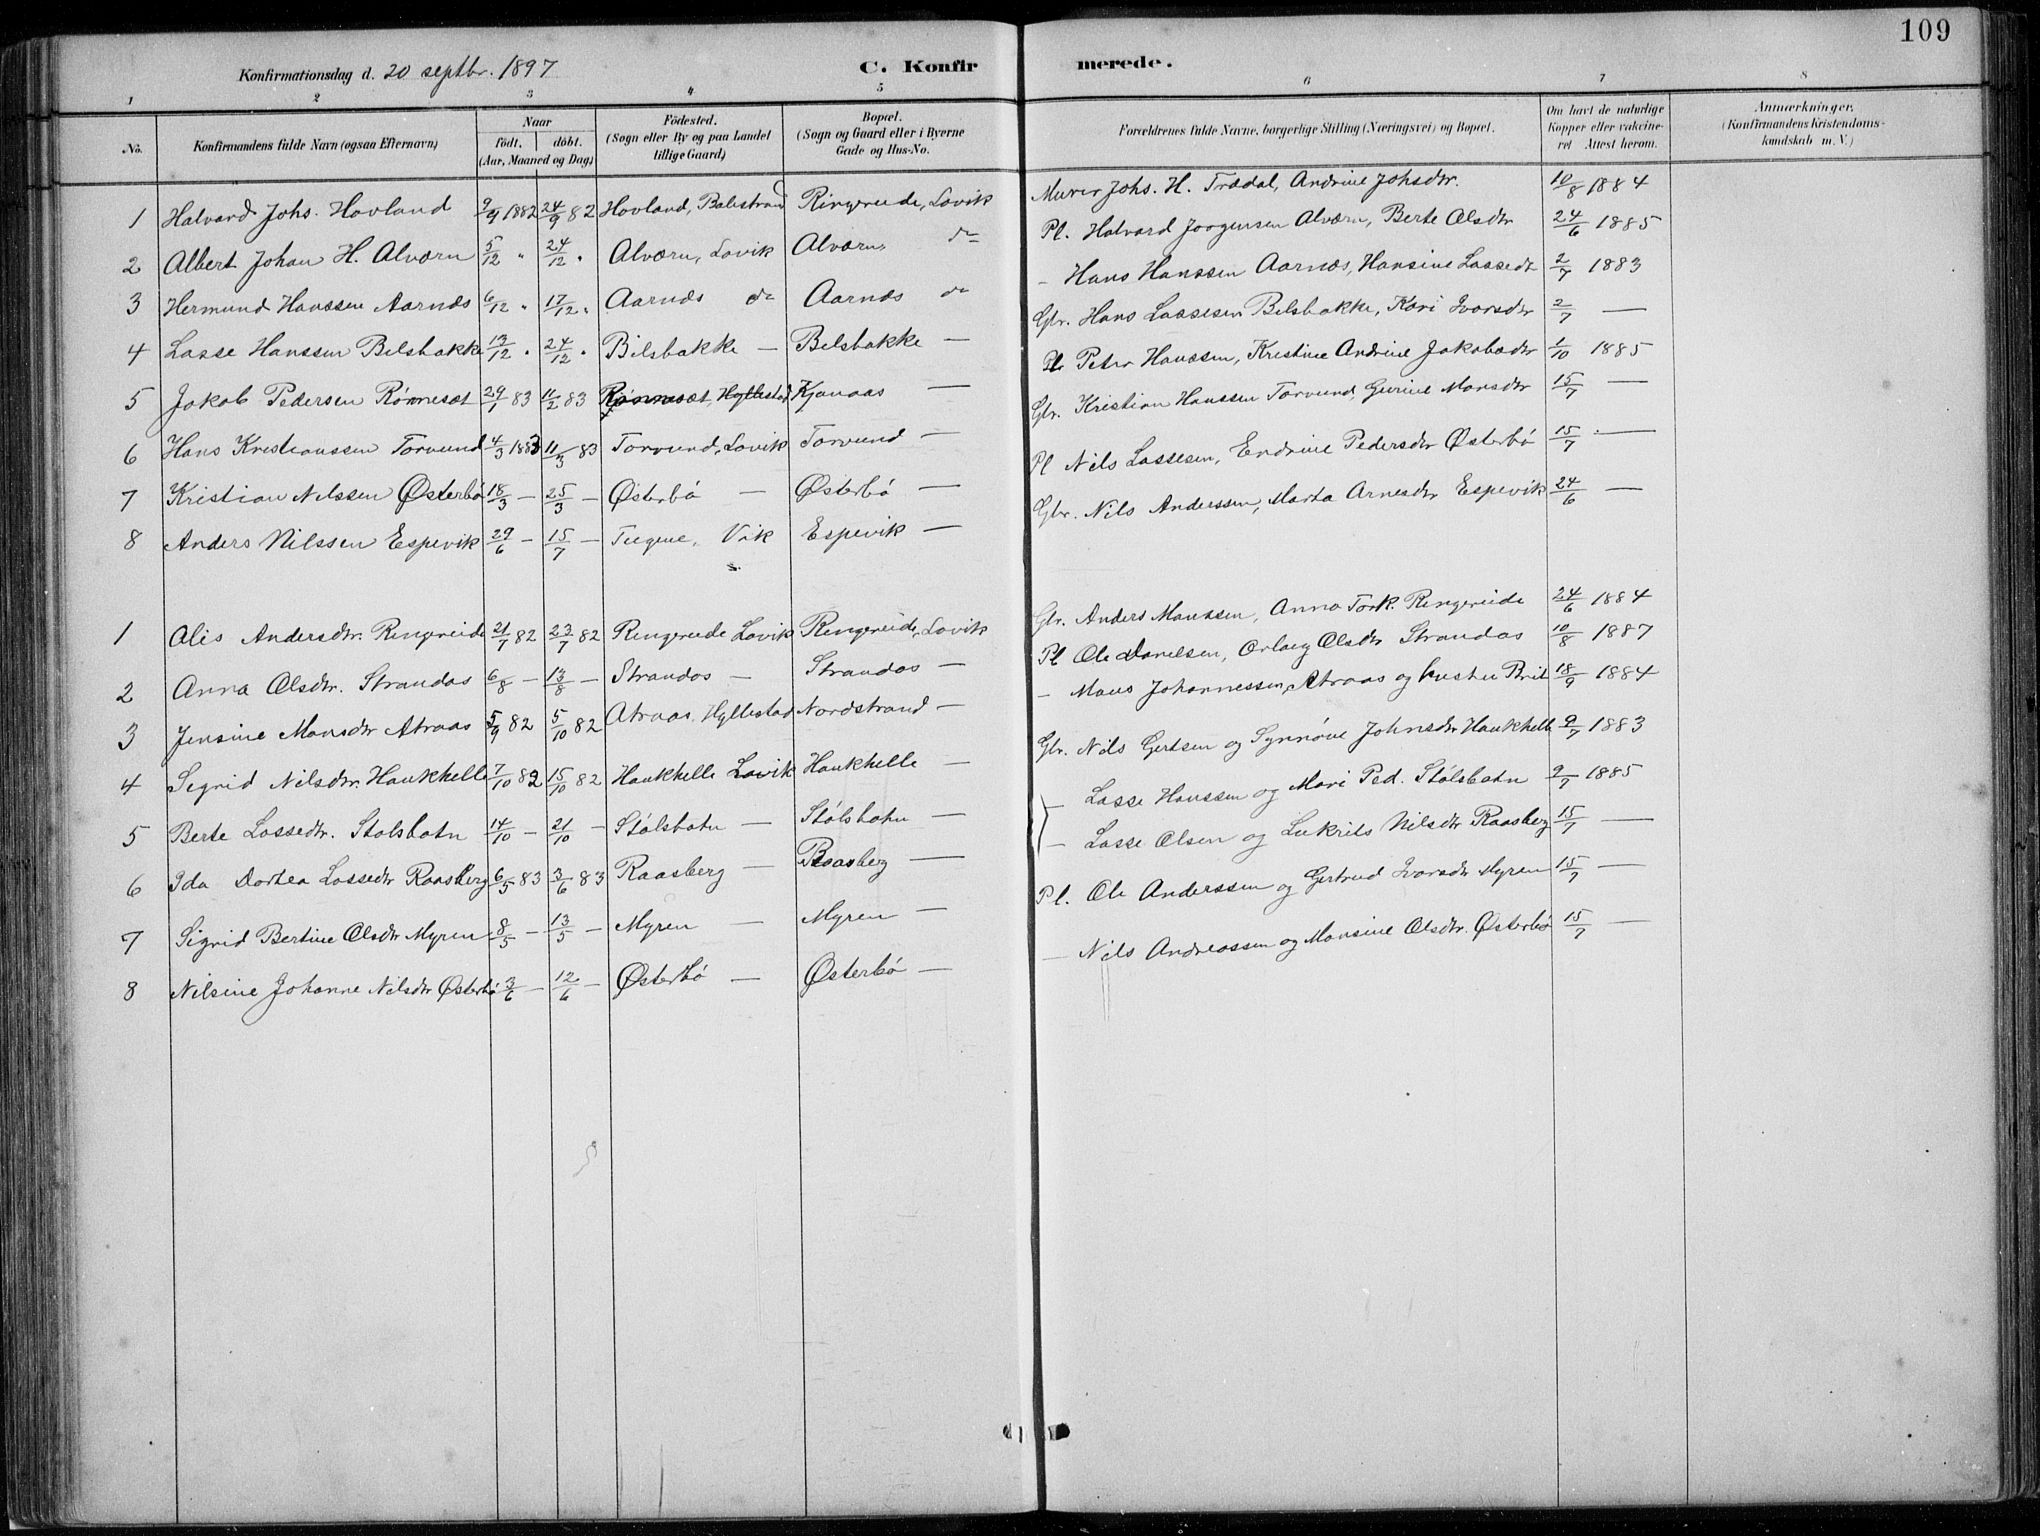 109
Konfirmationsdag d. 20 septbr. 1897 C. Konfirmerede.
1 2 3 4 5 6 7 8
No. Konfirmandens fulde Navn (ogsaa Efternavn) Naar født, døbt. (Aar, Maaned og Dag) Fødested. (Sogn eller By og paa Landet tillige Gaard) Bopæl. (Sogn og Gaard eller i Byerne Gade og Hus-No. Forældrenes fulde Navne, borgerlige Stilling (Næringsvei) og Bopæl. Om havt de naturlige Kopper eller vakcineret Attest herom. Anmærkninger. (Konfirmandens Kristendomskundskab m. V.)
1 Halvard Johs. Hovland 9/9 1882 24/9 82 Hovland, Balestrand Ringereide, Lavik Murer Johs. H. Trædal, Andrine Johsdtr. 10/8 1884
2 Albert Johan H. Alværn 5/12 " 24/12 " Alværn, Lavik Alværn do Pl. Halvard Joogensen Alværn, Berte Olsdtr 24/6 1885
3 Hermund Hanssen Aarnæs 6/12 " 17/12 " Aarnæs do Aarnæs do - Hans Hanssen Aarnæs, Hansine Lassedt 2/7 1883
4 Lasse Hanssen Bilsbakke 13/12 " 24/12 " Bilsbakke — Bilsbakke — Gbr. Hans Lassesen Bilsbakke, Kari Ivarsdtr 2/7 —
5 Jakob Pedersen Rønneset 29/1 83 11/2 83 Rønneset, Hyllestad Kjanaas — Pl. Peter Hanssen, Kristine Andrine Jakobsdtr 1/10 1885
6 Hans Kristianssen Torvund 4/3 1883 11/3 83 Torvund, Lavik Torvund — Gbr. Kristian Hanssen Torvund, Gurine Monsdtr 15/7 —
7 Kristian Nilssen Østerbø 18/3 — 25/3 — Østerbø — Østerbø — Pl Nils Lassesen, Endrine Pedersdtr Østerbø 15/7 —
8 Anders Nilssen Espevik 29/6 — 15/7 — Tugene, Vik Espevik — Gbr. Nils Anderssen, Marta Arnesdtr Espevik 24/6 —
1 Alis Andersdtr. Ringereide 21/7 82 23/7 82 Ringereide Lavik Ringereide, Lavik Gbr. Anders Monssen, Anna Tork. Ringereide 24/6 1884
2 Anna Olsdtr. Strandos 6/8 — 13/8 — Strandos — Strandos — Pl Ole Danielsen, Orlaug Olsdtr Strandos 10/8 1887
3 Jensine Monsdtr Atraas 5/9 82 5/10 82 Atraas, Hyllestad Nordstrand — - Mons Johannessen Atraas og hustru Brit 18/9 1884
4 Sigrid Nilsdtr. Haukhelle 7/10 82 15/10 82 Haukhelle Lavik Haukhelle — Gbr. Nils Gertsen og Synnøve Johnsdtr Haukhelle 9/7 1883
5 Berte Lassedtr. Stølsbotn 14/10 — 21/10 — Stølsbotn — Stølsbotn — — Lasse Hanssen og Mari Ped. Stølsbotn 9/7 1885
6 Ida Dortea Lassedtr Raasberg 6/5 83 3/6 83 Raasberg — Raasberg — — Lasse Olsen og Lukrits Nilsdtr Raasberg 15/7 —
7 Sigrid Bertine Olsdtr Myren 8/5 — 13/5 — Myren — Myren — Pl. Ole Anderssen og Gertrud Ivarsdtr Myren 15/7 —
8 Nilsine Johanne Nilsdtr Østerbø 3/6 — 12/6 — Østerbø — Østerbø — — Nils Andreassen og Monsine Olsdtr. Østerbø 15/7 —